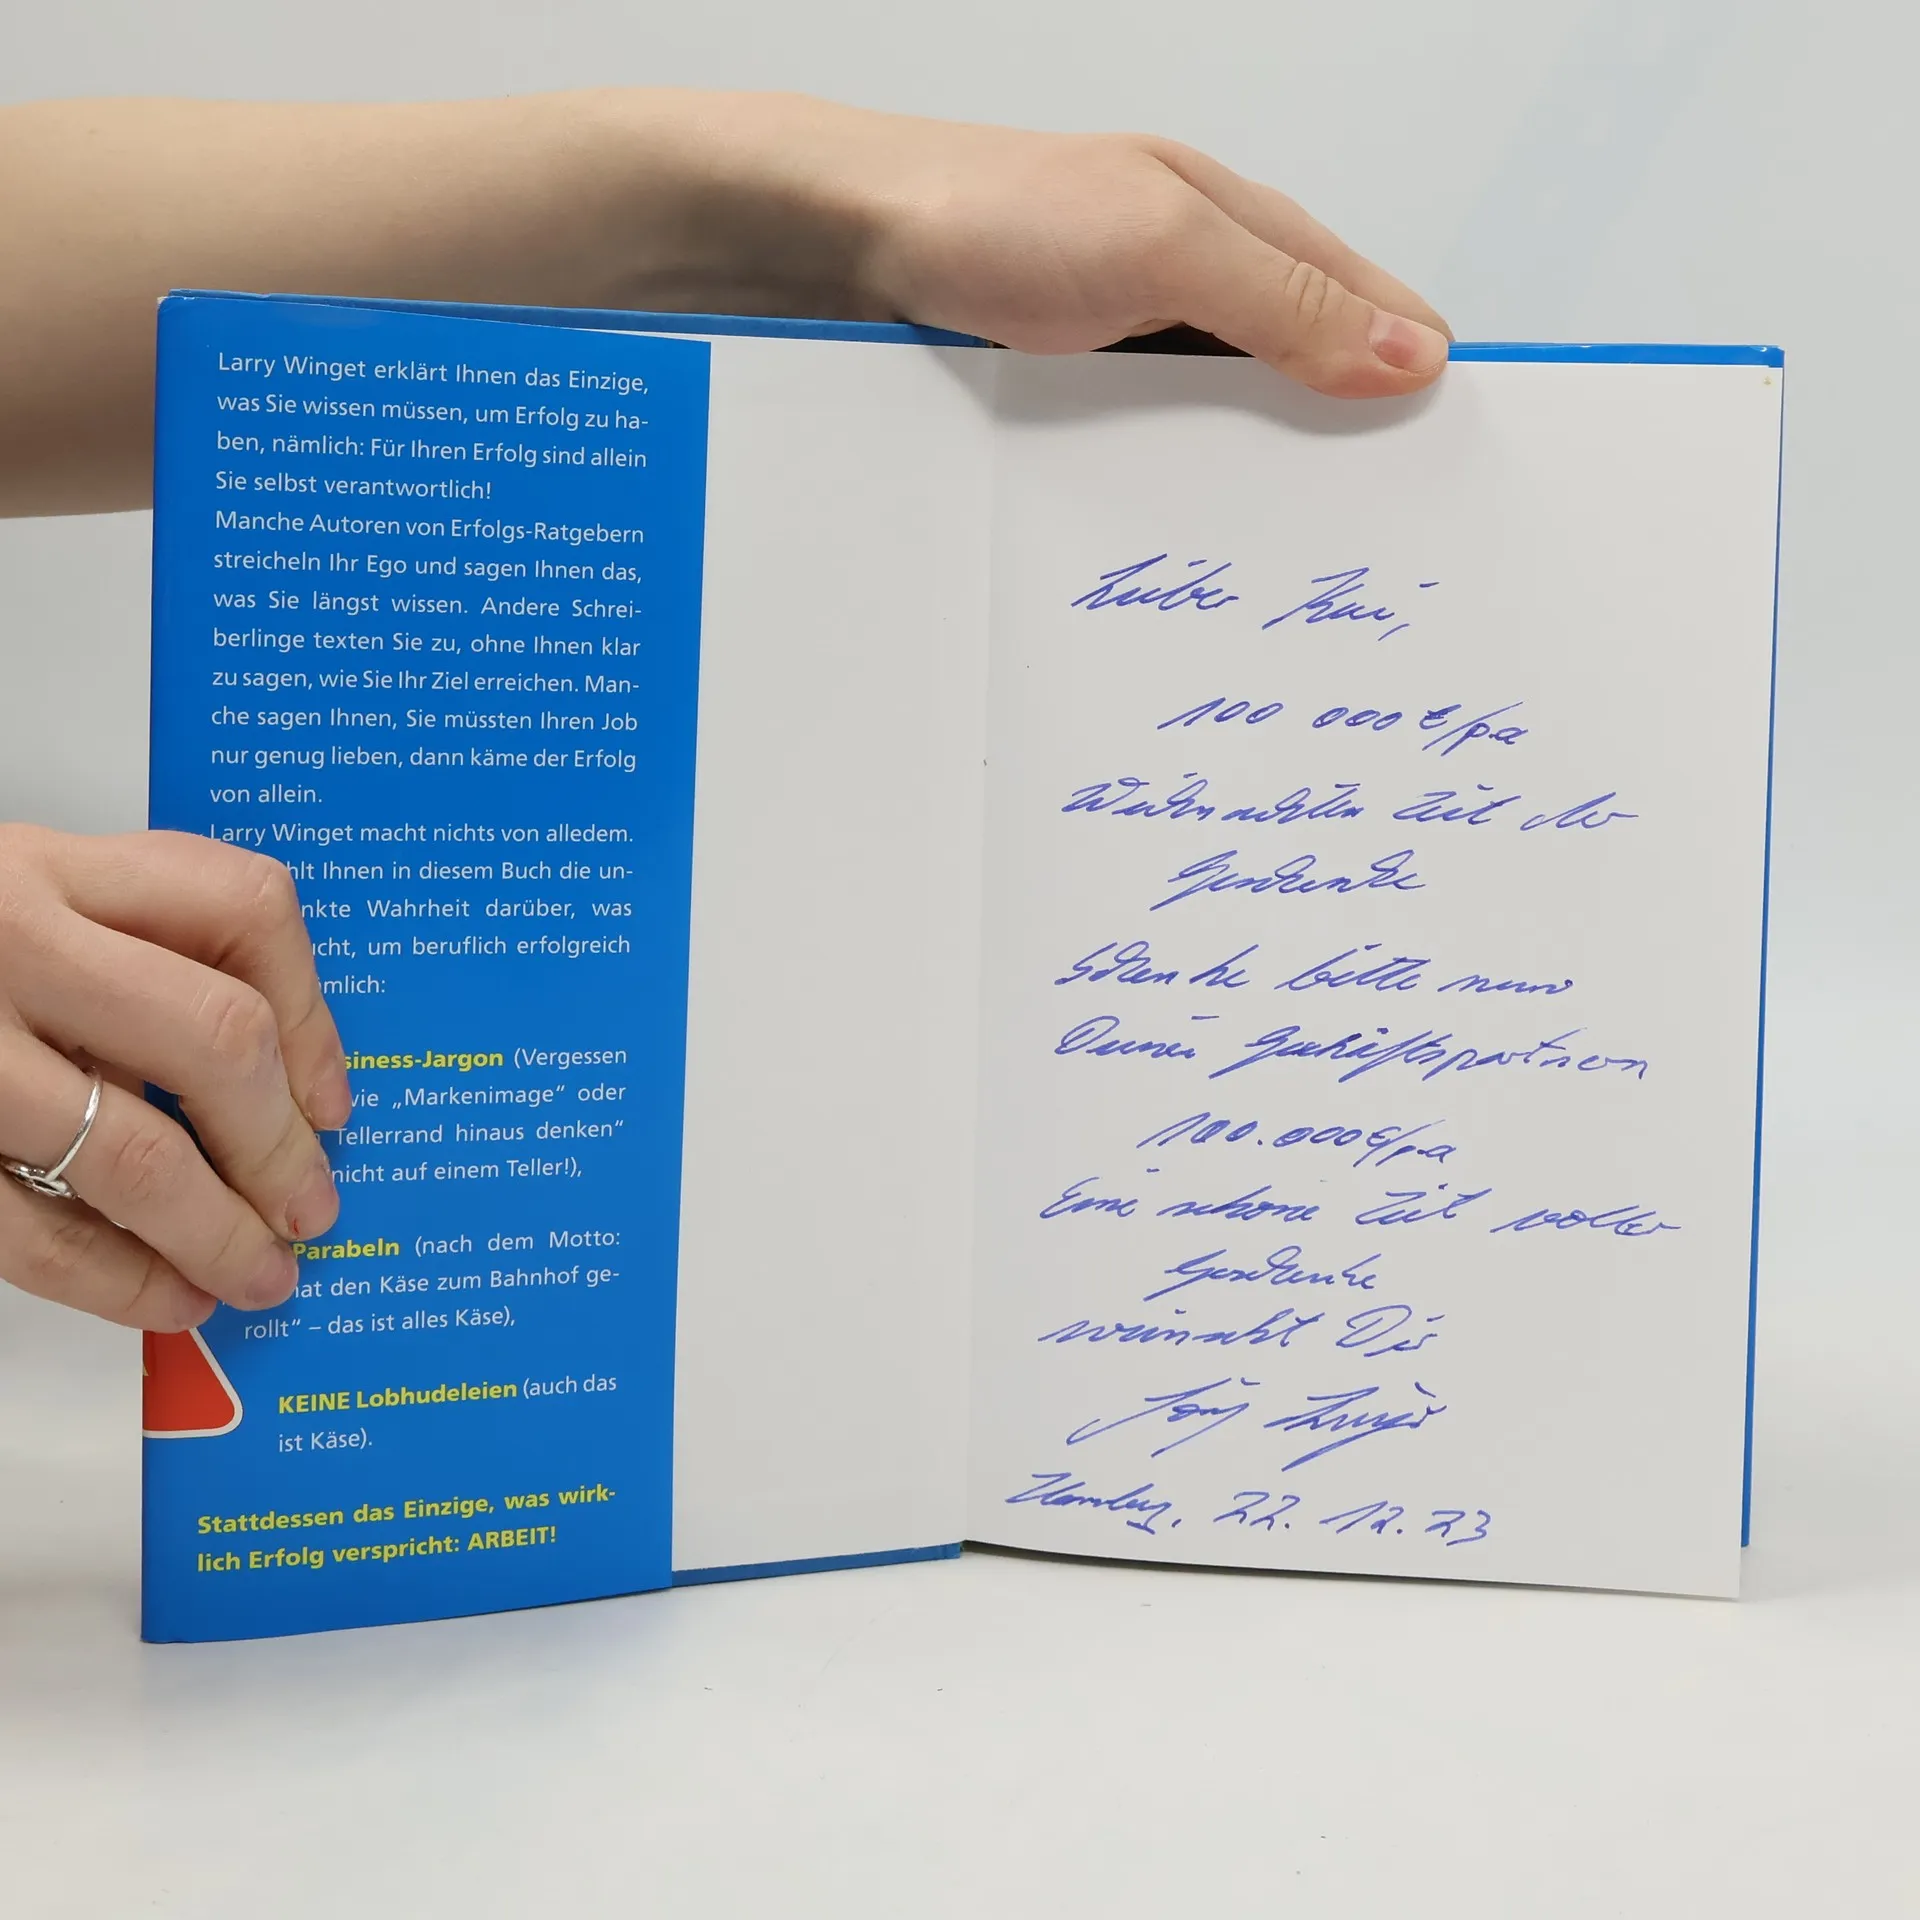 Larry Winget erklärt Ihnen das Einzige,
was Sie wissen müssen, um Erfolg zu ha-
ben, nämlich: Für Ihren Erfolg sind allein
Sie selbst verantwortlich!
Manche Autoren von Erfolgs-Ratgebern
streicheln Ihr Ego und sagen Ihnen das,
was Sie längst wissen. Andere Schrei-
berlinge texten Sie zu, ohne Ihnen klar
zu sagen, wie Sie Ihr Ziel erreichen. Man-
che sagen Ihnen, Sie müssten Ihren Job
nur genug lieben, dann käme der Erfolg
von allein.
Larry Winget macht nichts von alledem.
hlt Ihnen in diesem Buch die un-
nkte Wahrheit darüber, was
ucht, um beruflich erfolgreich
mlich:
siness-Jargon (Vergessen
vie „Markenimage“ oder
Tellerrand hinaus denken“
nicht auf einem Teller!),
Parabeln (nach dem Motto:
hat den Käse zum Bahnhof ge-
rollt“ – das ist alles Käse),
KEINE Lobhudeleien (auch das
ist Käse).
Stattdessen das Einzige, was wirk-
lich Erfolg verspricht: ARBEIT!
Lieber Kai,
100 000 €/pa
Weihnachten Zeit der
Geschenke
Schenke bitte nun
Deinen Geschäftspartnern
100.000 €/pa
Eine schöne Zeit voller
Geschenke
wünscht Dir
Hamburg, 22. 12. 23